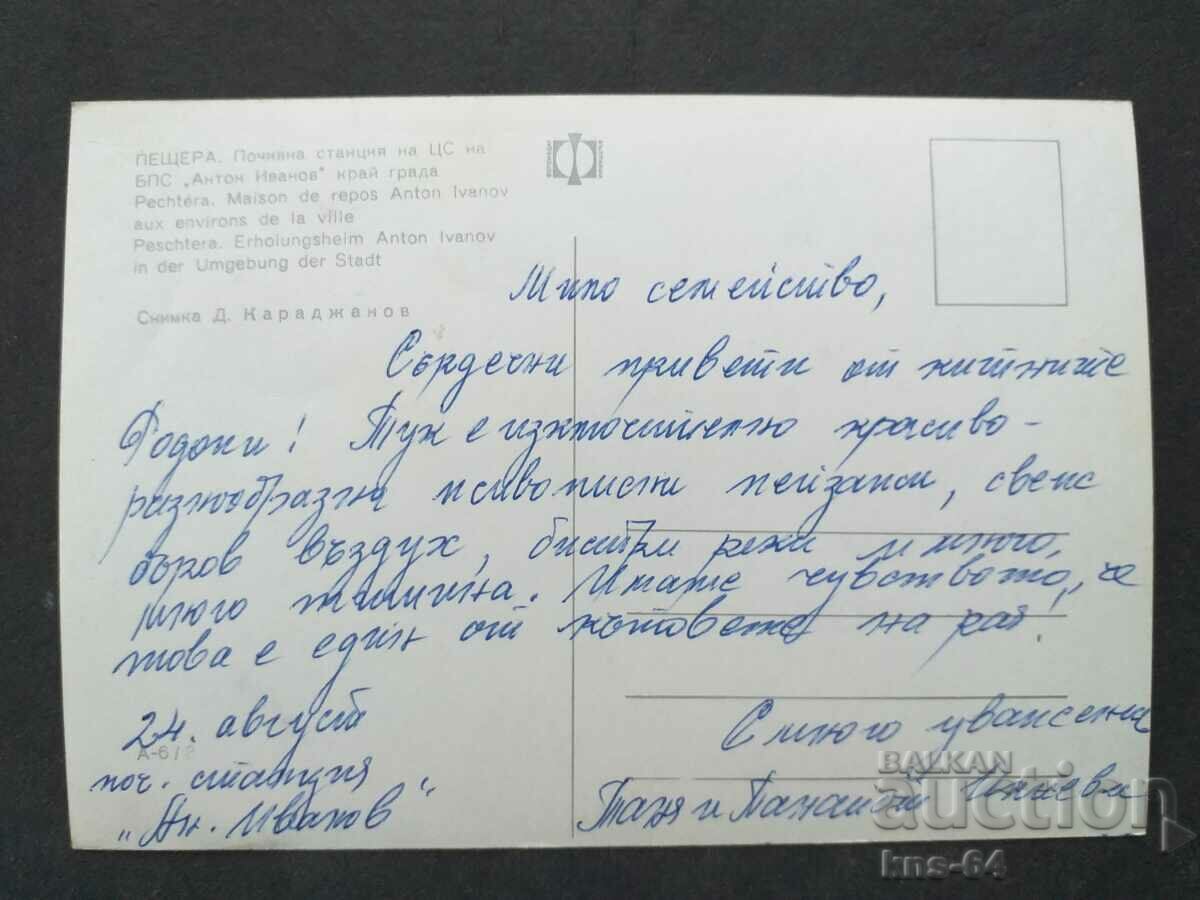 ПЕЩЕРА. Почивна станция на ЦС на
БПС „Антон Иванов" край града
Pechtéra. Maison de repos Anton Ivanov
aux environs de la ville
Peschtera. Erholungsheim Anton Ivanov
in der Umgebung der Stadt
Снимка Д. Караджанов
Мило семейство,
Сърдечни привети от китните
Родопи! Тук е изключително красиво -
разнообразни живописни пейзажи, свеж
боров въздух, бистри реки и много,
много тишина. Имаме чувството, че
това е един от кътовете на рая!
24. август
А-6/
поч. станция
„Ан. Иванов"
С много уважение
Таня и Панайот
BALKAN
auction
kns-64